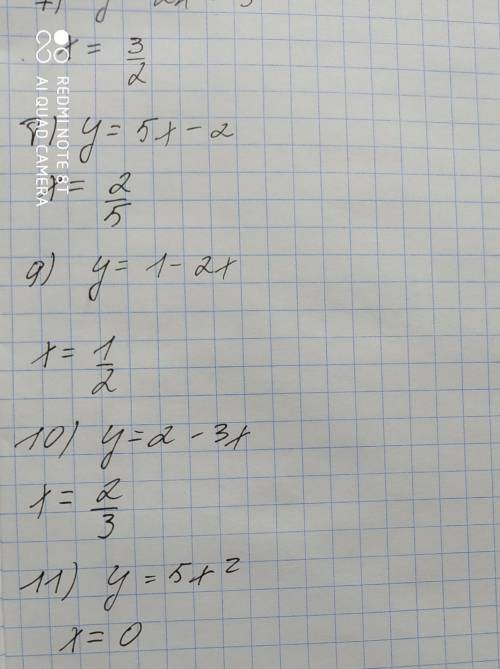 x = 3/2
8) y = 5x - 2
x = 2/5
9) y = 1 - 2x
x = 1/2
10) y = 2 - 3x
x = 2/3
11) y = 5x²
x = 0
REDMI NOTE 8T
AI QUAD CAMERA